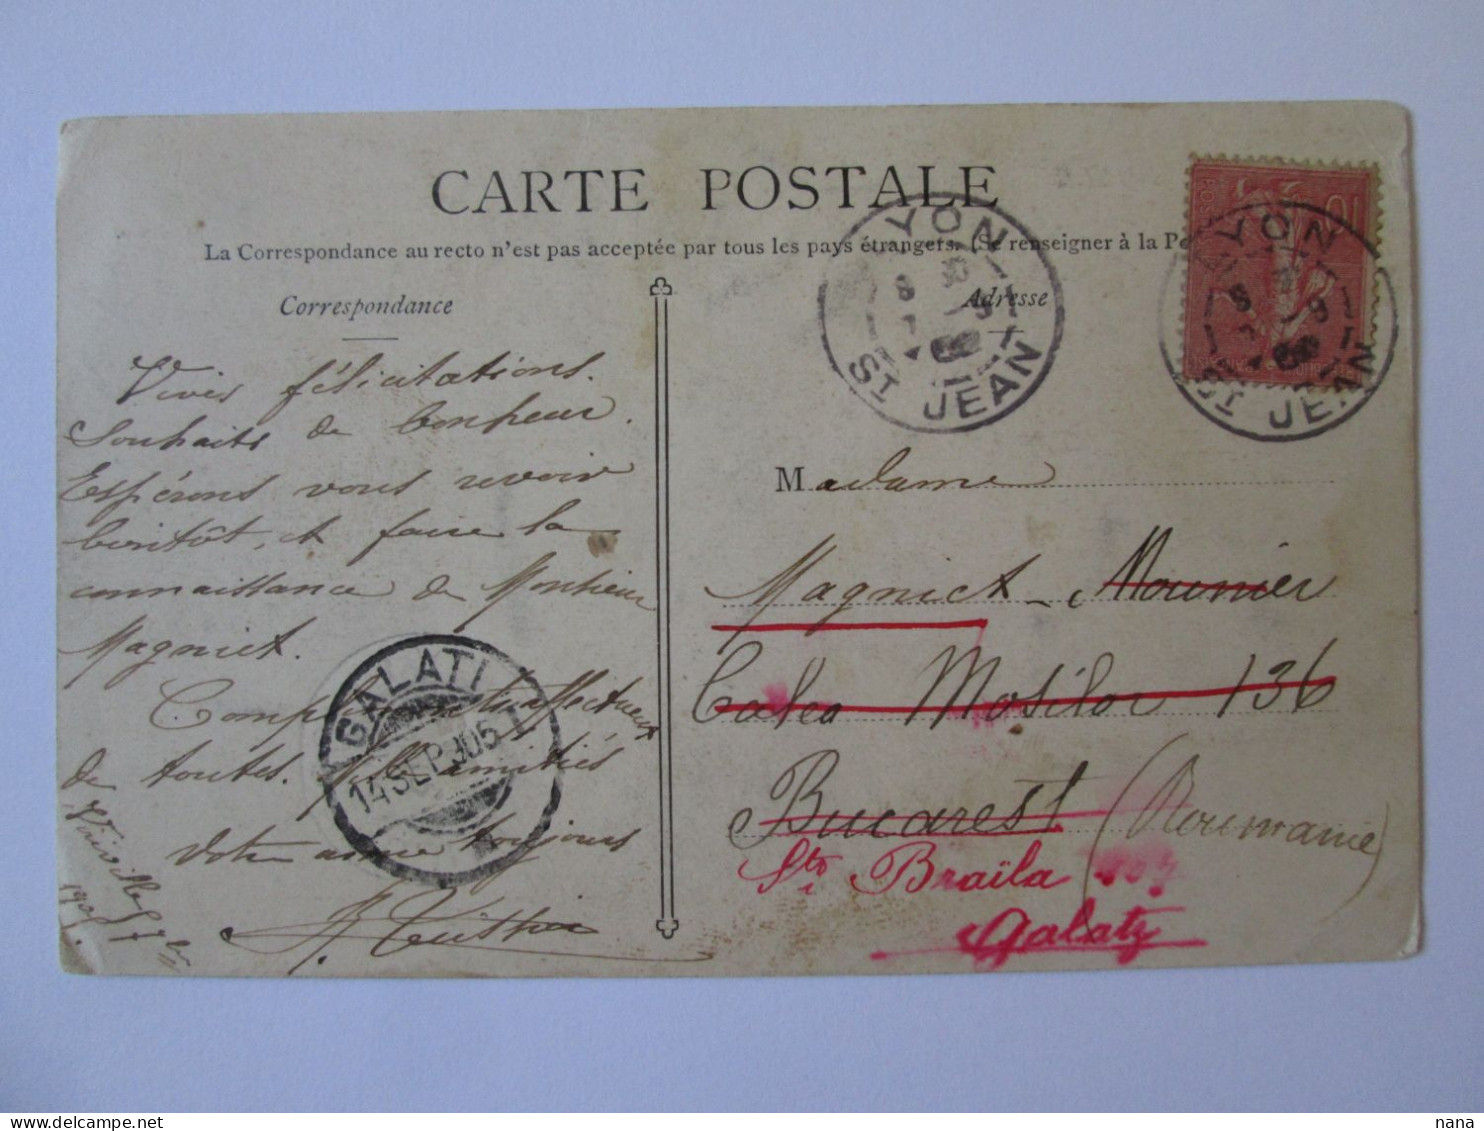 CARTE POSTALE
La Correspondance au recto n'est pas acceptée par tous les pays étrangers. (Se renseigner à la Po
Correspondance
Adresse
Vives félicitations.
Souhaits de bonheur.
Espérons vous revoir
bientôt, et faire la
connaissance de Monsieur
Magnict.
de toutes. amitiés
Votre amie toujours
7
1905
GALATI
14 SEP 905
LYON
ST JEAN
LYON
ST JEAN
10
Madame
Magnict - Mounier
Calea Mosilor 136
Bucarest (Roumanie)
Str. Braïla
Galatz
nana